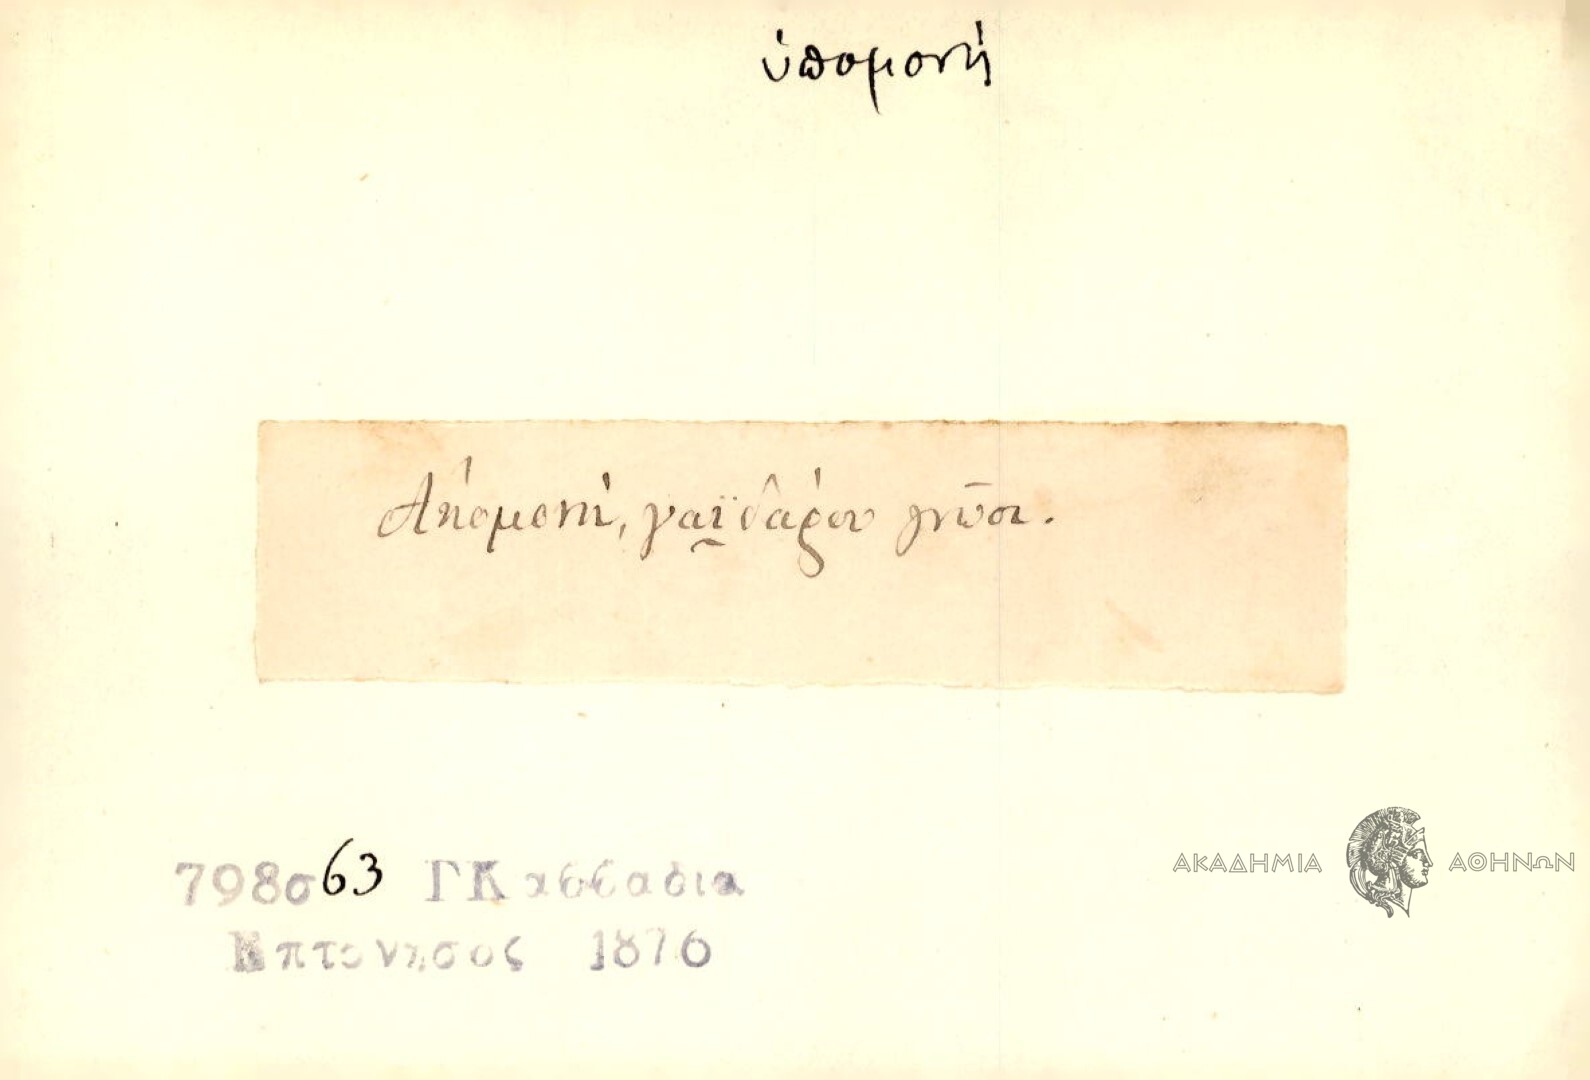 ὑπομονή
Ἀπομονή, γαϊδάρου γνῶσι.
798σ63 ΓΚασσαδια
Επτανησος 1876
ΑΚΑΔΗΜΙΑ ΑΘΗΝΩΝ